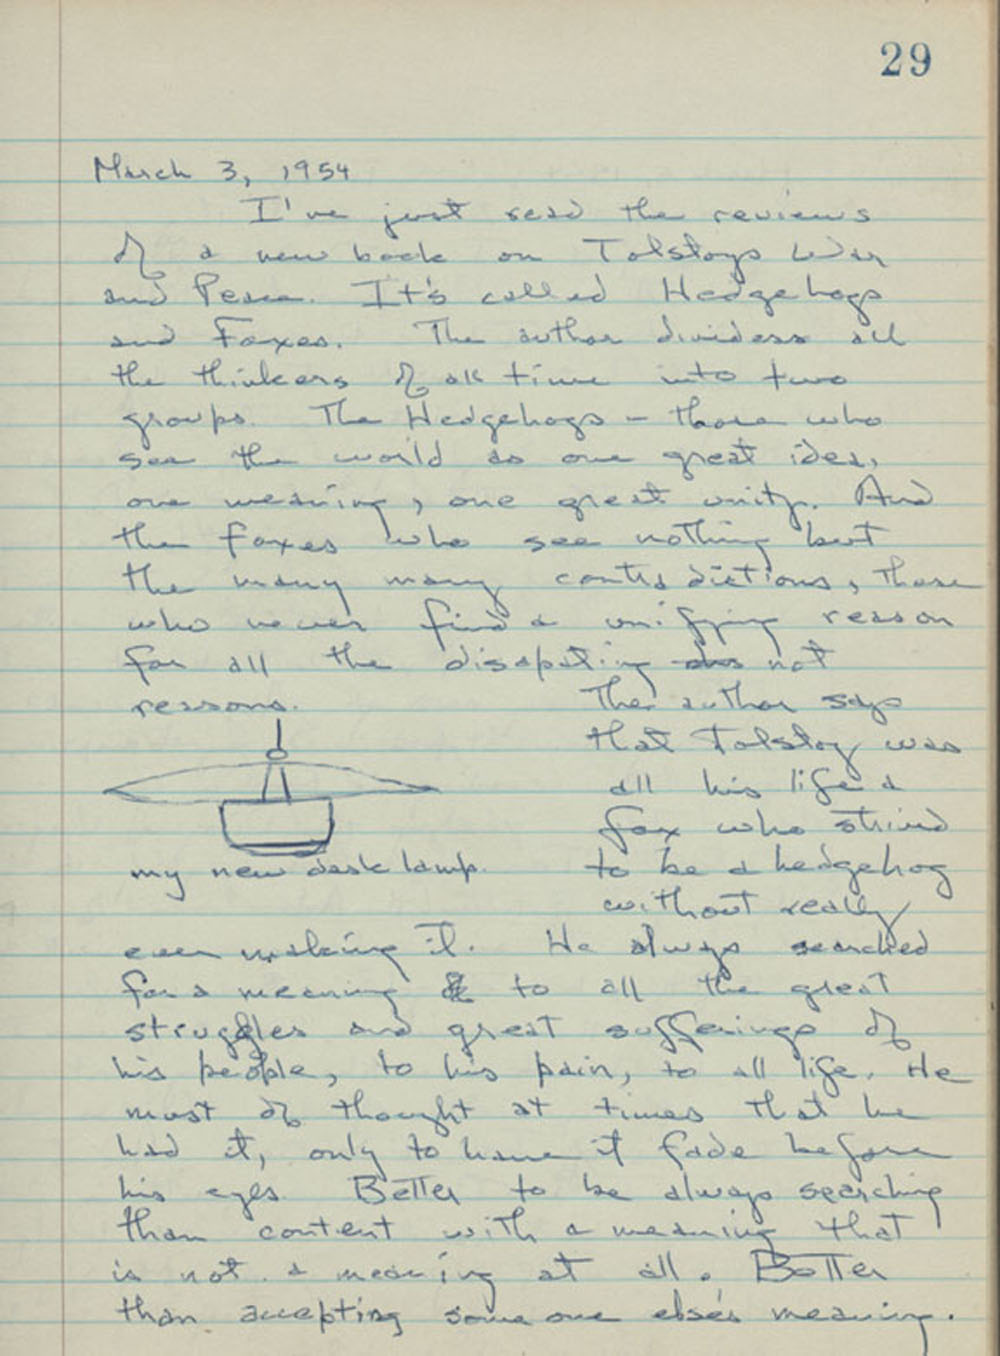 29
March 3, 1954
I've just read the reviews
of a new book on Tolstoys War
and Peace. It's called Hedgehogs
and Foxes. The author dividess all
the thinkers of all time into two
groups. The Hedgehogs - those who
see the world as one great idea,
one meaning, one great unity. And
the foxes who see nothing but
the many many contradictions, those
who never find a unifying reason
for all the disapating not
reasons. The author says
that Tolstoy was
all his life a
fox who strived
to be a hedgehog
without really
my new desk lamp.
ever making it. He always searched
for a meaning to all the great
struggles and great sufferings of
his people, to his pain, to all life. He
must of thought at times that he
had it, only to have it fade before
his eyes. Better to be always searching
than content with a meaning that
is not a meaning at all. Better
than accepting some one else's meaning.